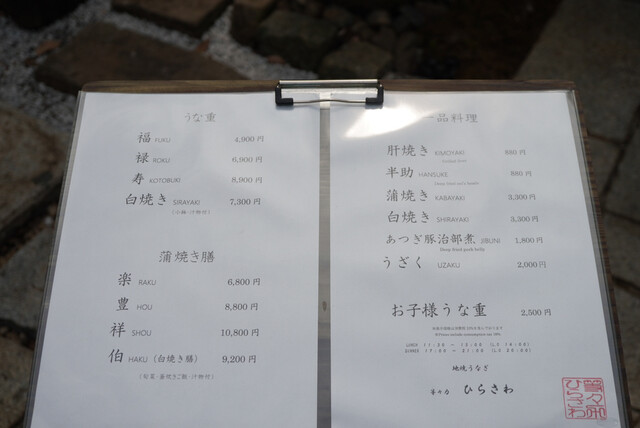 うな重
福 FUKU 4,900 円
禄 ROKU 6,900 円
寿 KOTOBUKI 8,900 円
白焼き SIRAYAKI 7,300 円
蒲焼き膳
楽 RAKU 6,800 円
豊 HOU 8,800 円
祥 SHOU 10,800 円
伯 HAKU (白焼き膳) 9,200 円
一品料理
肝焼き KIMOYAKI 880 円
半助 HANSUKE 880 円
蒲焼き KABAYAKI 3,300 円
白焼き SHIRAYAKI 3,300 円
あつぎ豚治部煮 JIBUNI 1,800 円
うざく UZAKU 2,000 円
お子様うな重 2,500 円
LUNCH 11:30 ～ 15:00 (LO 14:00)
DINNER 17:00 ～ 21:00 (LO 20:00)
地焼うなぎ
ひらさわ
ひらさわ